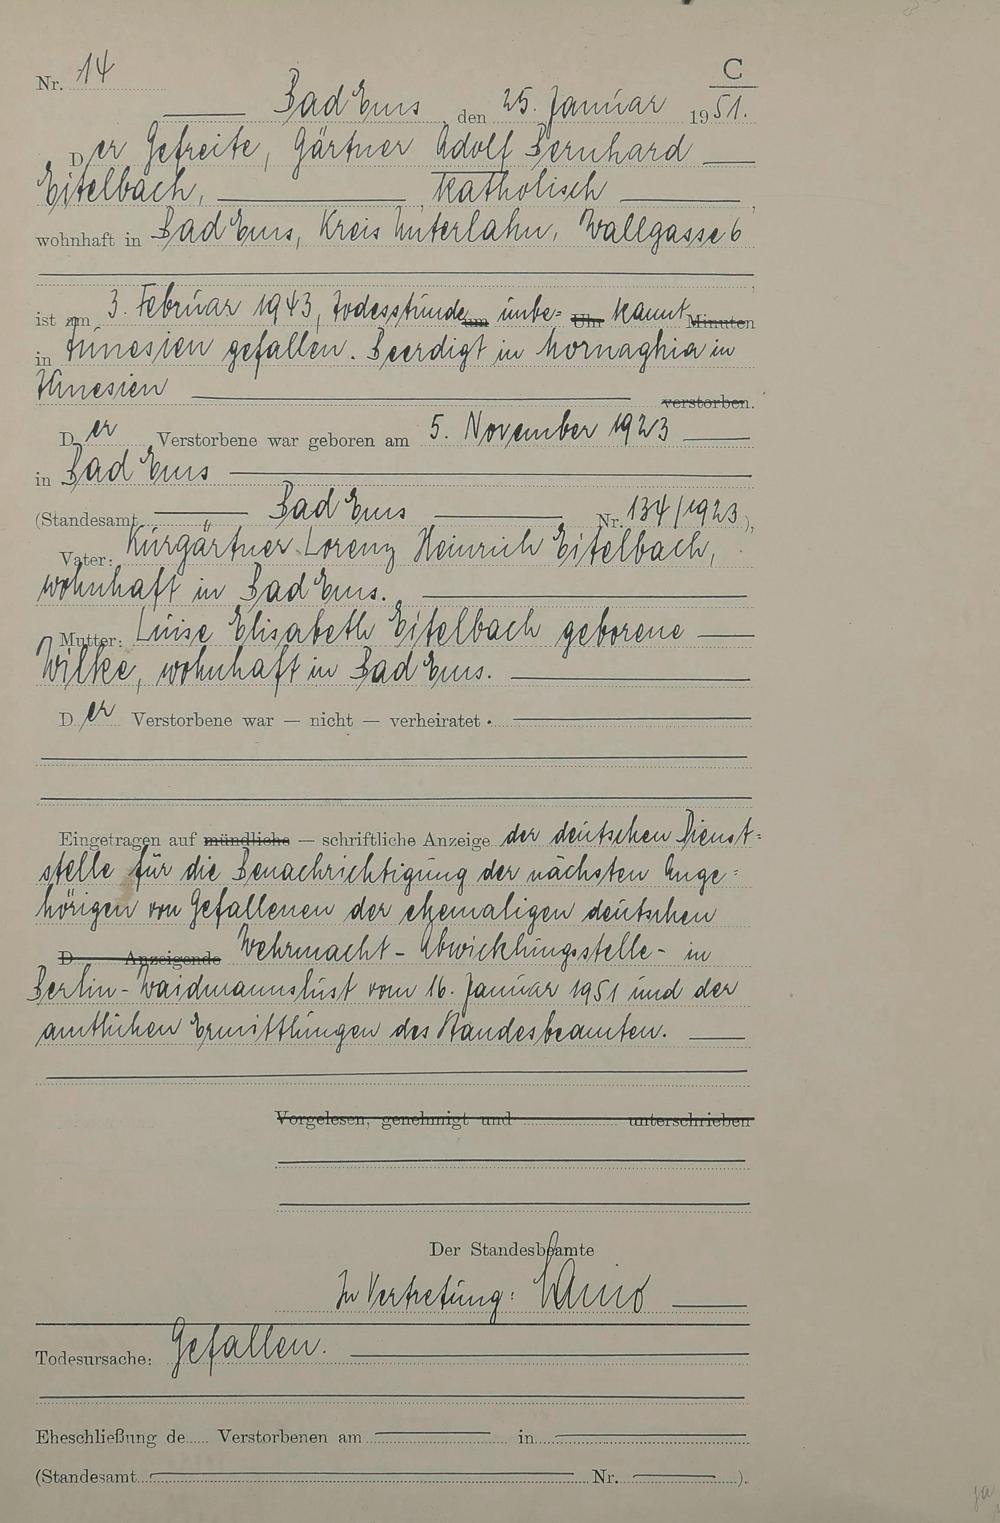 C
Nr. 14
Bad Ems, den 25. Januar 1951.
Der Gefreite, Gärtner Adolf Bernhard
Eitelbach, katholisch,
wohnhaft in Bad Ems, Kreis Unterlahn, Wallgasse 6
ist am 3. Februar 1943, Todesstunde um unbe= Uhr kannt Minuten
in Tunesien gefallen. Beerdigt in Mornaghia in
Tunesien verstorben.
Der Verstorbene war geboren am 5. November 1923
in Bad Ems
(Standesamt „ Bad Ems Nr. 134/1923),
Vater: Kurgärtner Lorenz Heinrich Eitelbach,
wohnhaft in Bad Ems.
Mutter: Luise Elisabeth Eitelbach geborene
Wilke, wohnhaft in Bad Ems.
Der Verstorbene war — nicht — verheiratet.
Eingetragen auf mündliche — schriftliche Anzeige der deutschen Dienst=
stelle für die Benachrichtigung der nächsten Ange=
hörigen von Gefallenen der ehemaligen deutschen
D Anzeigende Wehrmacht - Abwicklungsstelle - in
Berlin - Waidmannslust vom 16. Januar 1951 und der
amtlichen Ermittlungen des Standesbeamten.
Vorgelesen, genehmigt und unterschrieben
Der Standesbeamte
In Vertretung:
Todesursache: Gefallen.
Eheschließung de Verstorbenen am in
(Standesamt Nr. ).
ja